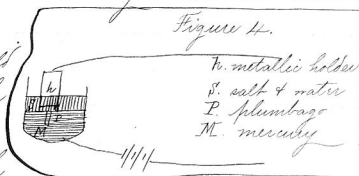 Figure 4.
h. metallic holder
S. salt & water
P. plumbago
M. mercury
h
S
P
M